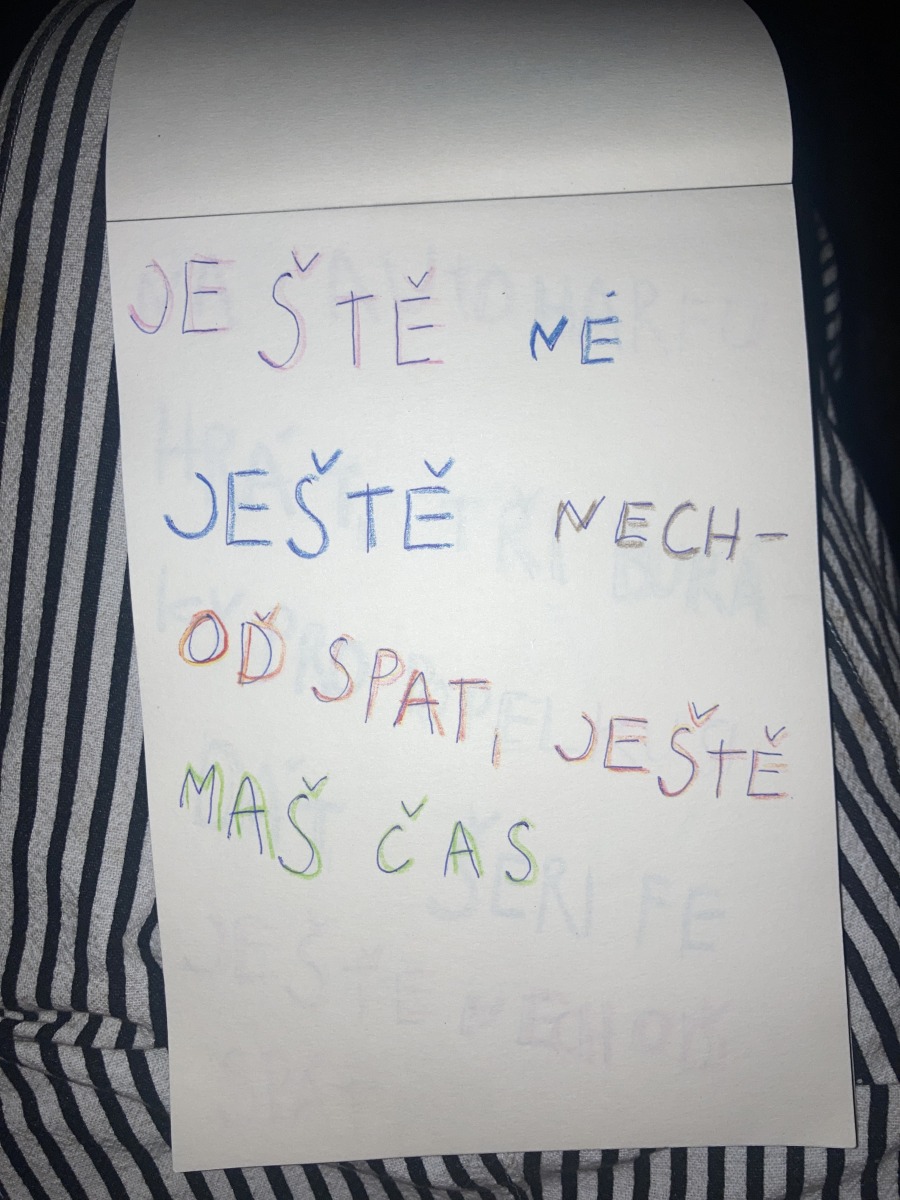 JEŠTĚ NÉ
JEŠTĚ NECH-
OĎ SPAT, JEŠTĚ
MAŠ ČAS